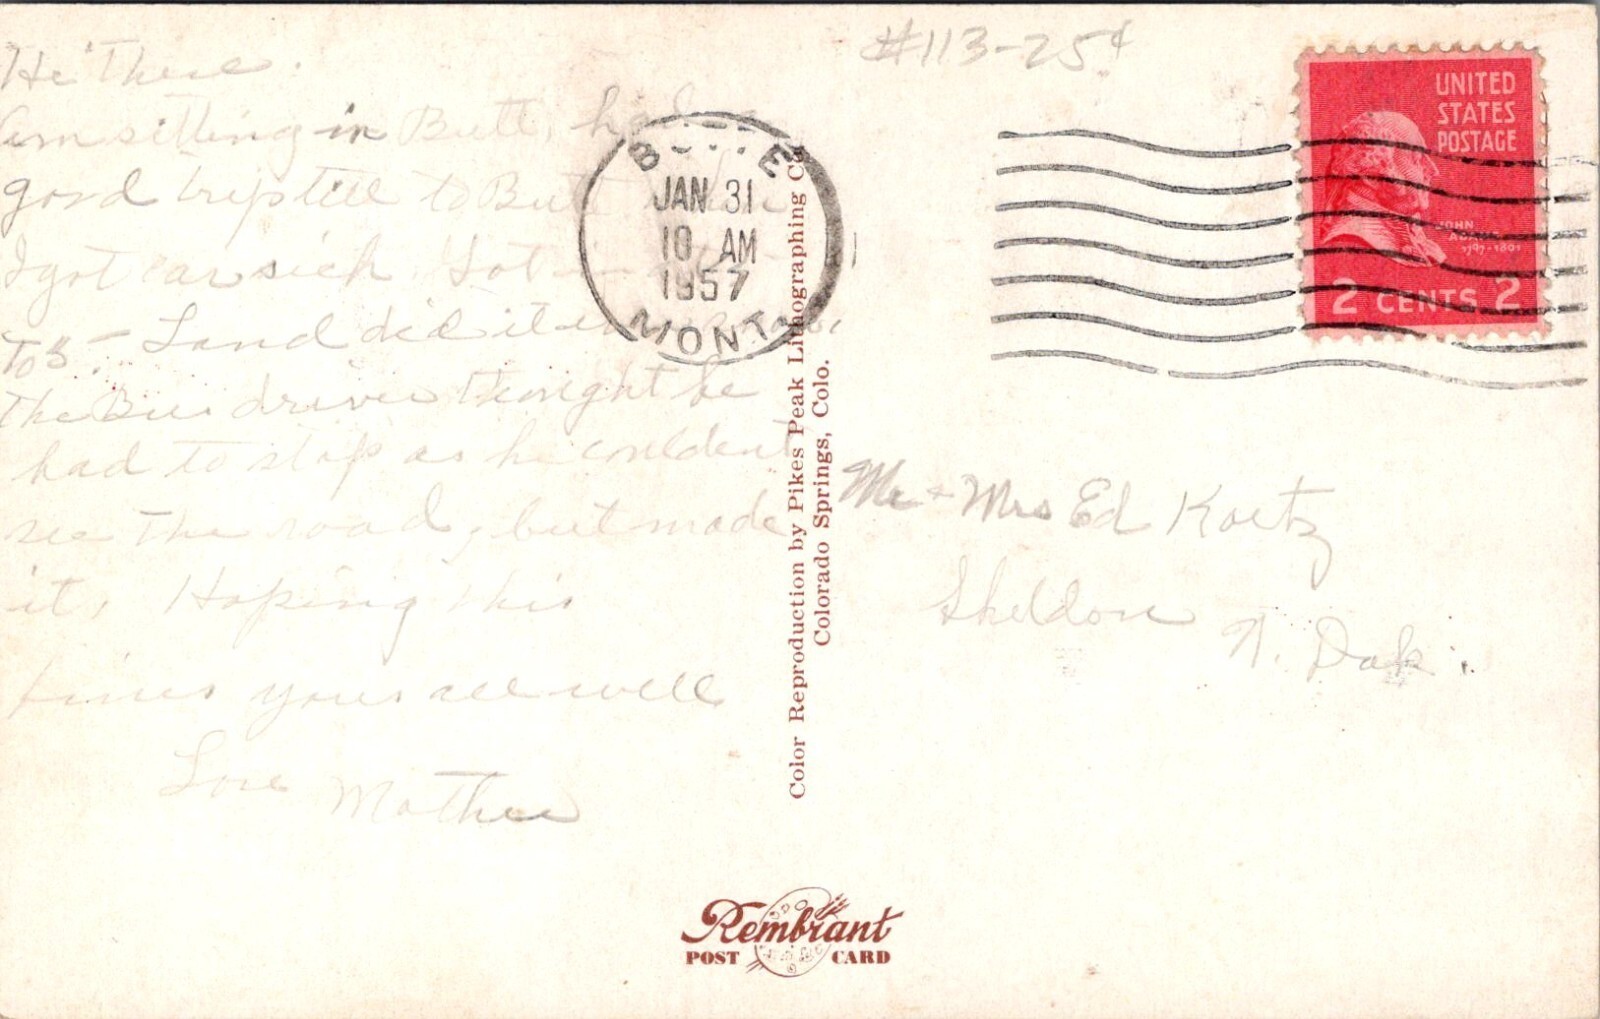 #113-25¢
Hi There.
Am sitting in Butt, had a
good trip till to Butt
I got car sick. Got
to 3 - Land did it
The Bus driver thought he
had to stop as he couldent
see the road, but made
it, Hoping this
fines yous all well
Love Mother
BUTTE
JAN 31
10 AM
1957
MONT.
UNITED
STATES
POSTAGE
JOHN
ADAMS
1797-1801
2 CENTS 2
Color Reproduction by Pikes Peak Lithographing Co.
Colorado Springs, Colo.
Mr + Mrs Ed Kaetz
Sheldon
N. Dak.
Rembrant
POST CARD